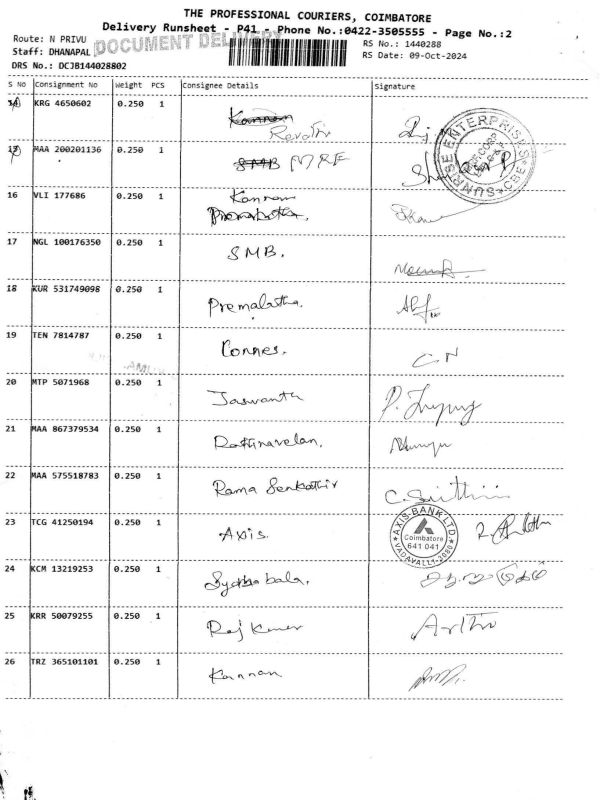 THE PROFESSIONAL COURIERS, COIMBATORE
Delivery Runsheet - P41 - Phone No.:0422-3505555 - Page No.:2
Route: N PRIVU
DOCUMENT DELIVERY
RS No.: 1440288
Staff: DHANAPAL
RS Date: 09-Oct-2024
DRS No.: DCJB144028802
S No Consignment No Weight PCS Consignee Details Signature
KRG 4650602 0.250 1 Kannan
Revathi
SUNRISE ENTERPRISES CBE
MAA 200201136 0.250 1 SMB MRF
16 VLI 177686 0.250 1 Kannan
Premalatha.
17 NGL 100176350 0.250 1 SMB.
18 KUR 531749098 0.250 1 Premalatha.
19 TEN 7814787 0.250 1 Connes. C.N
20 MTP 5071968 0.250 1 Jaswanth
21 MAA 867379534 0.250 1 Rathinavelan.
22 MAA 575518783 0.250 1 Rama Senkathir
23 TCG 41250194 0.250 1 Axis.
AXIS BANK LTD.
Coimbatore
641 041
24 KCM 13219253 0.250 1
25 KRR 50079255 0.250 1 Raj Kumar
26 TRZ 365101101 0.250 1 Kannan